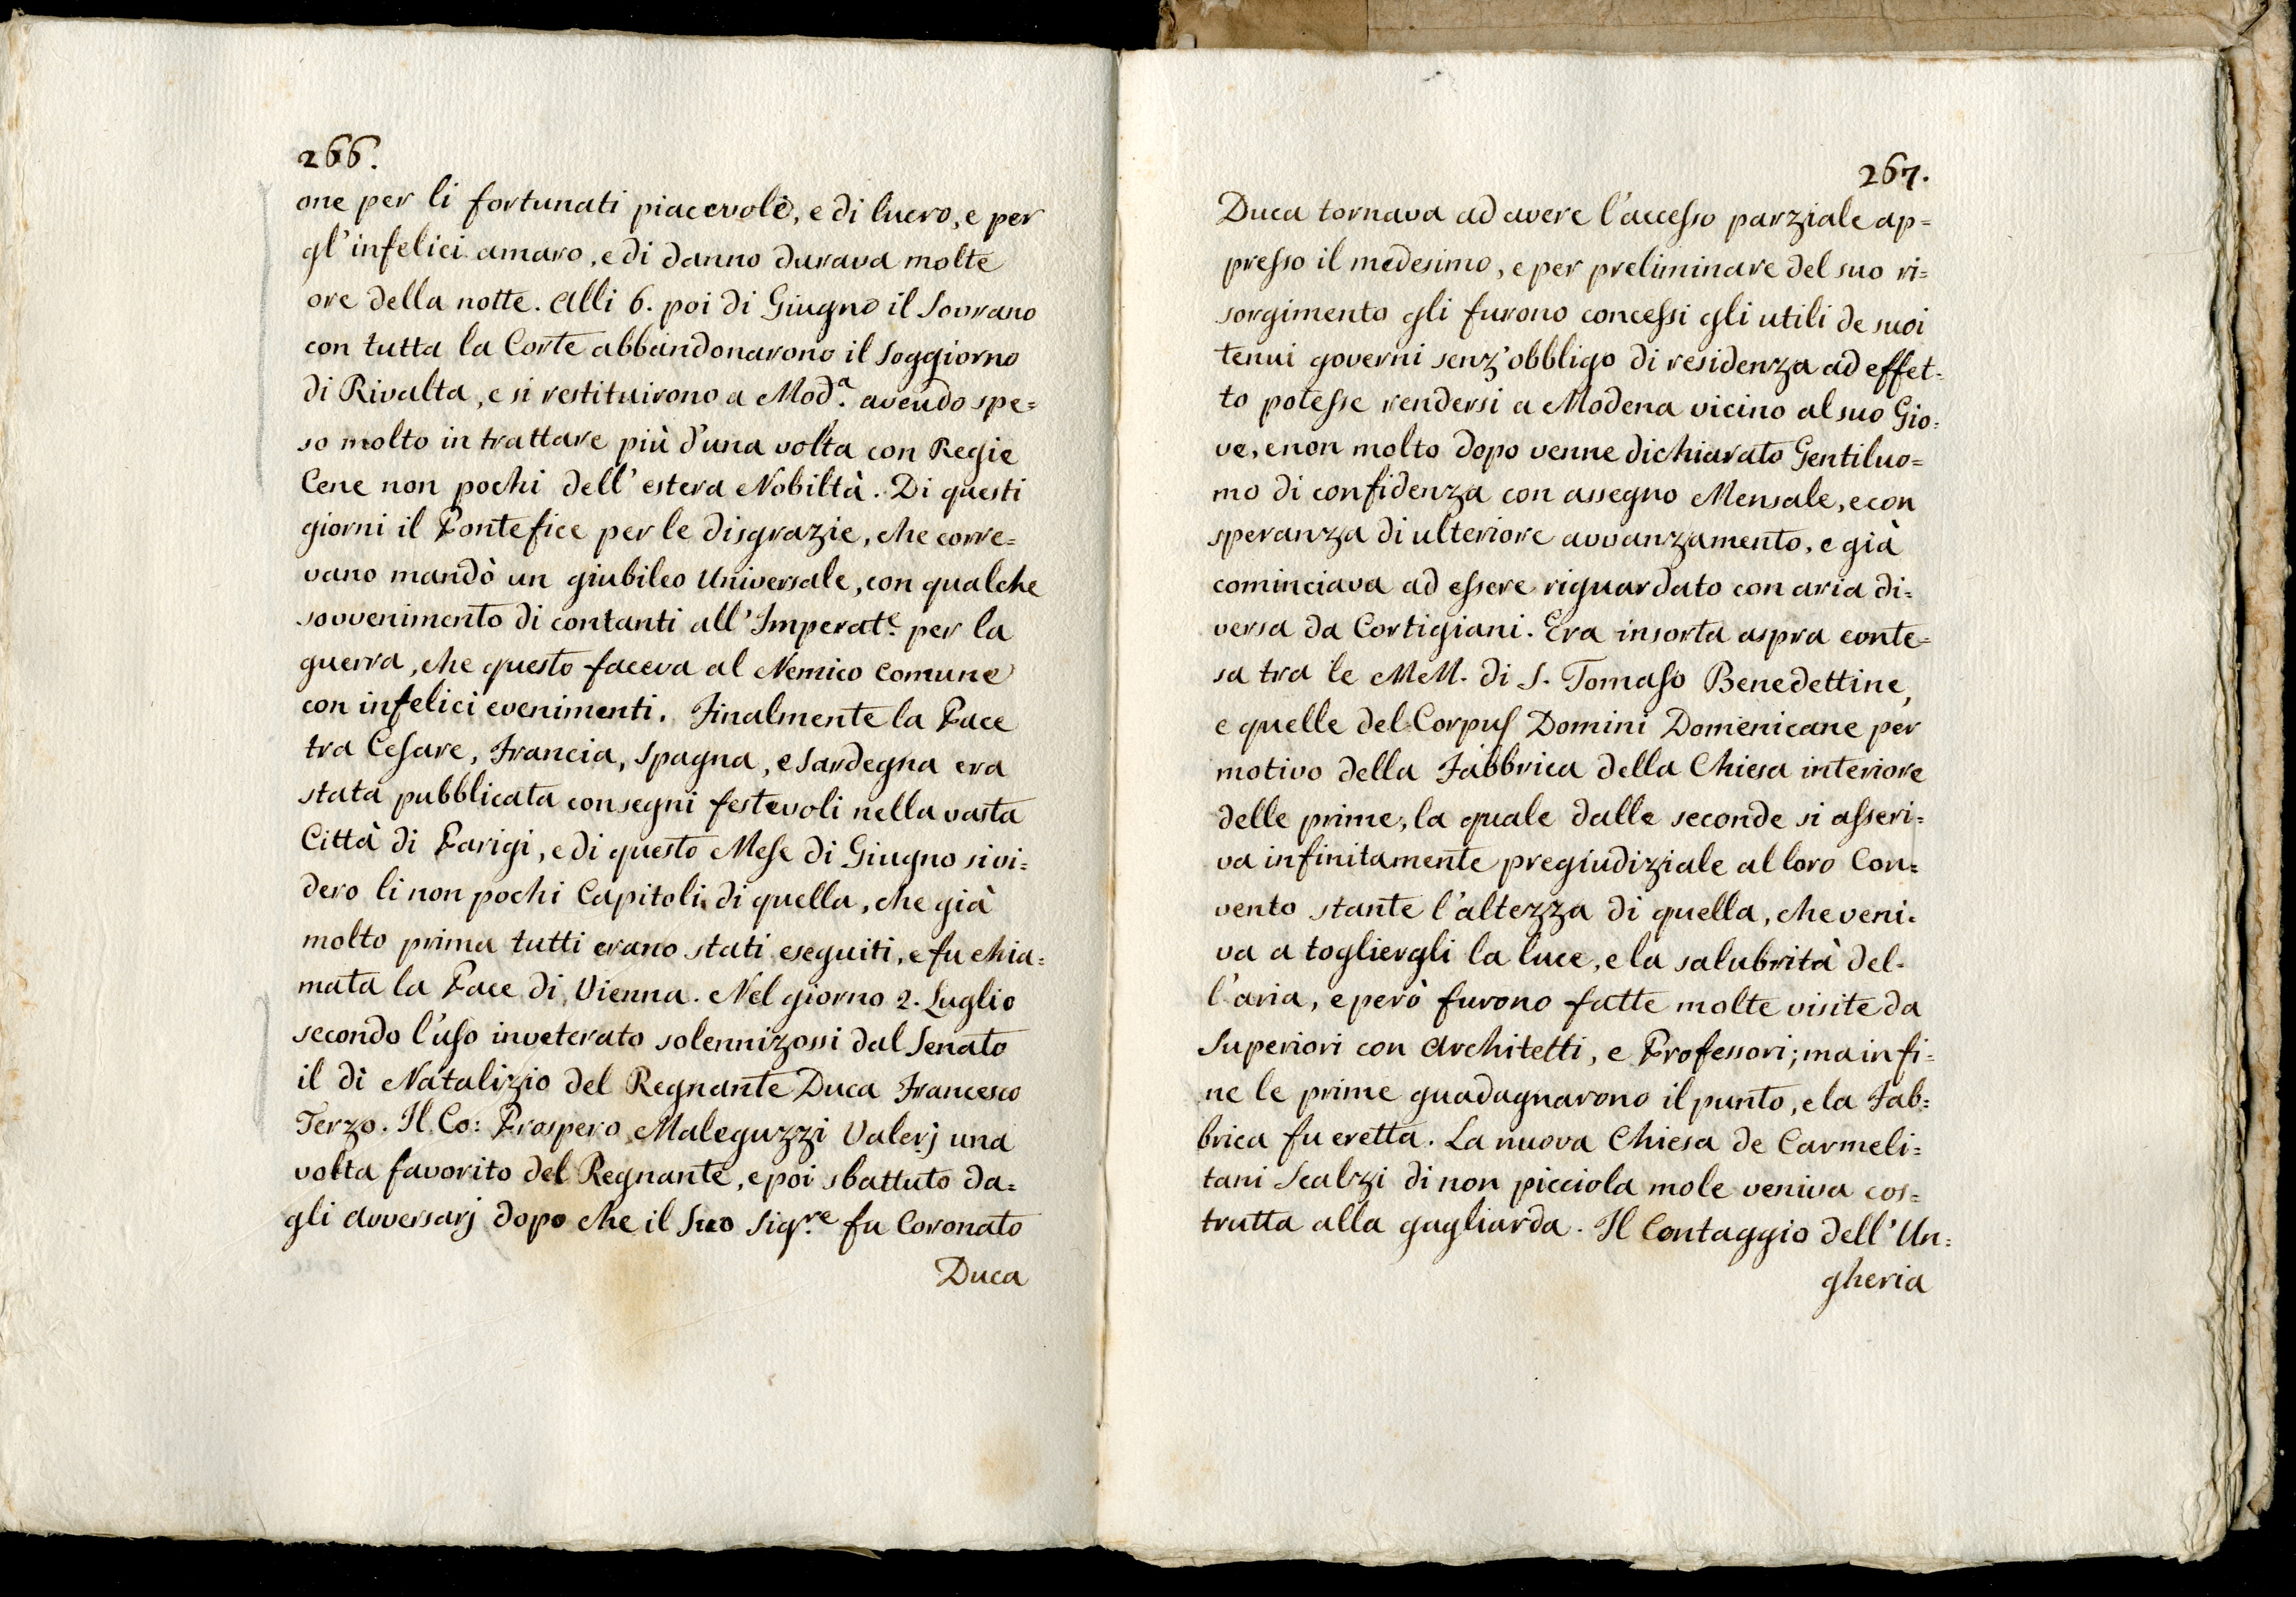 266.
one per li fortunati piacevole, e di lucro, e per
gl'infelici amaro, e di danno durava molte
ore della notte. Alli 6. poi di Giugno il Sovrano
con tutta la Corte abbandonarono il Soggiorno
di Rivalta, e si restituirono a Mod.ª avendo spe=
so molto in trattare più d'una volta con Regie
Cene non pochi dell'estera Nobiltà. Di questi
giorni il Pontefice per le disgrazie, che corre=
vano mandò un giubileo Universale, con qualche
sovvenimento di contanti all'Imperat.e per la
guerra, che questo faceva al Nemico comune
con infelici evenimenti. Finalmente la Pace
tra Cesare, Francia, Spagna, e Sardegna era
stata pubblicata con segni festevoli nella vasta
Città di Parigi, e di questo Mese di Giugno si vi=
dero li non pochi Capitoli di quella, che già
molto prima tutti erano stati eseguiti, e fu chia=
mata la Pace di Vienna. Nel giorno 2. Luglio
secondo l'uso inveterato solennizossi dal Senato
il dì Natalizio del Regnante Duca Francesco
Terzo. Il Co: Prospero Maleguzzi Valerj una
volta favorito del Regnante, e poi sbattuto da=
gli avversarj dopo che il Suo Sig.re fu Coronato
Duca
267.
Duca tornava ad avere l'accesso parziale ap=
presso il medesimo, e per preliminare del suo ri=
sorgimento gli furono concessi gli utili de suoi
tenui governi senz'obbligo di residenza ad effet=
to potesse rendersi a Modena vicino al suo Gio=
ve, e non molto dopo venne dichiarato Gentiluo=
mo di confidenza con assegno Mensale, e con
speranza di ulteriore avvanzamento, e già
cominciava ad essere riguardato con aria di=
versa da Cortigiani. Era insorta aspra conte=
sa tra le MeM. di S. Tomaso Benedettine,
e quelle del Corpus Domini Domenicane per
motivo della Fabbrica della Chiesa interiore
delle prime, la quale dalle seconde si asseri=
va infinitamente pregiudiziale al loro Con=
vento stante l'altezza di quella, che veni=
va a togliergli la luce, e la salubrità del=
l'aria, e però furono fatte molte visite da
Superiori con Architetti, e Professori; ma in fi=
ne le prime guadagnarono il punto, e la Fab=
brica fu eretta. La nuova Chiesa de Carmeli=
tani Scalzi di non picciola mole veniva cos=
trutta alla gagliarda. Il Contaggio dell'Un=
gheria